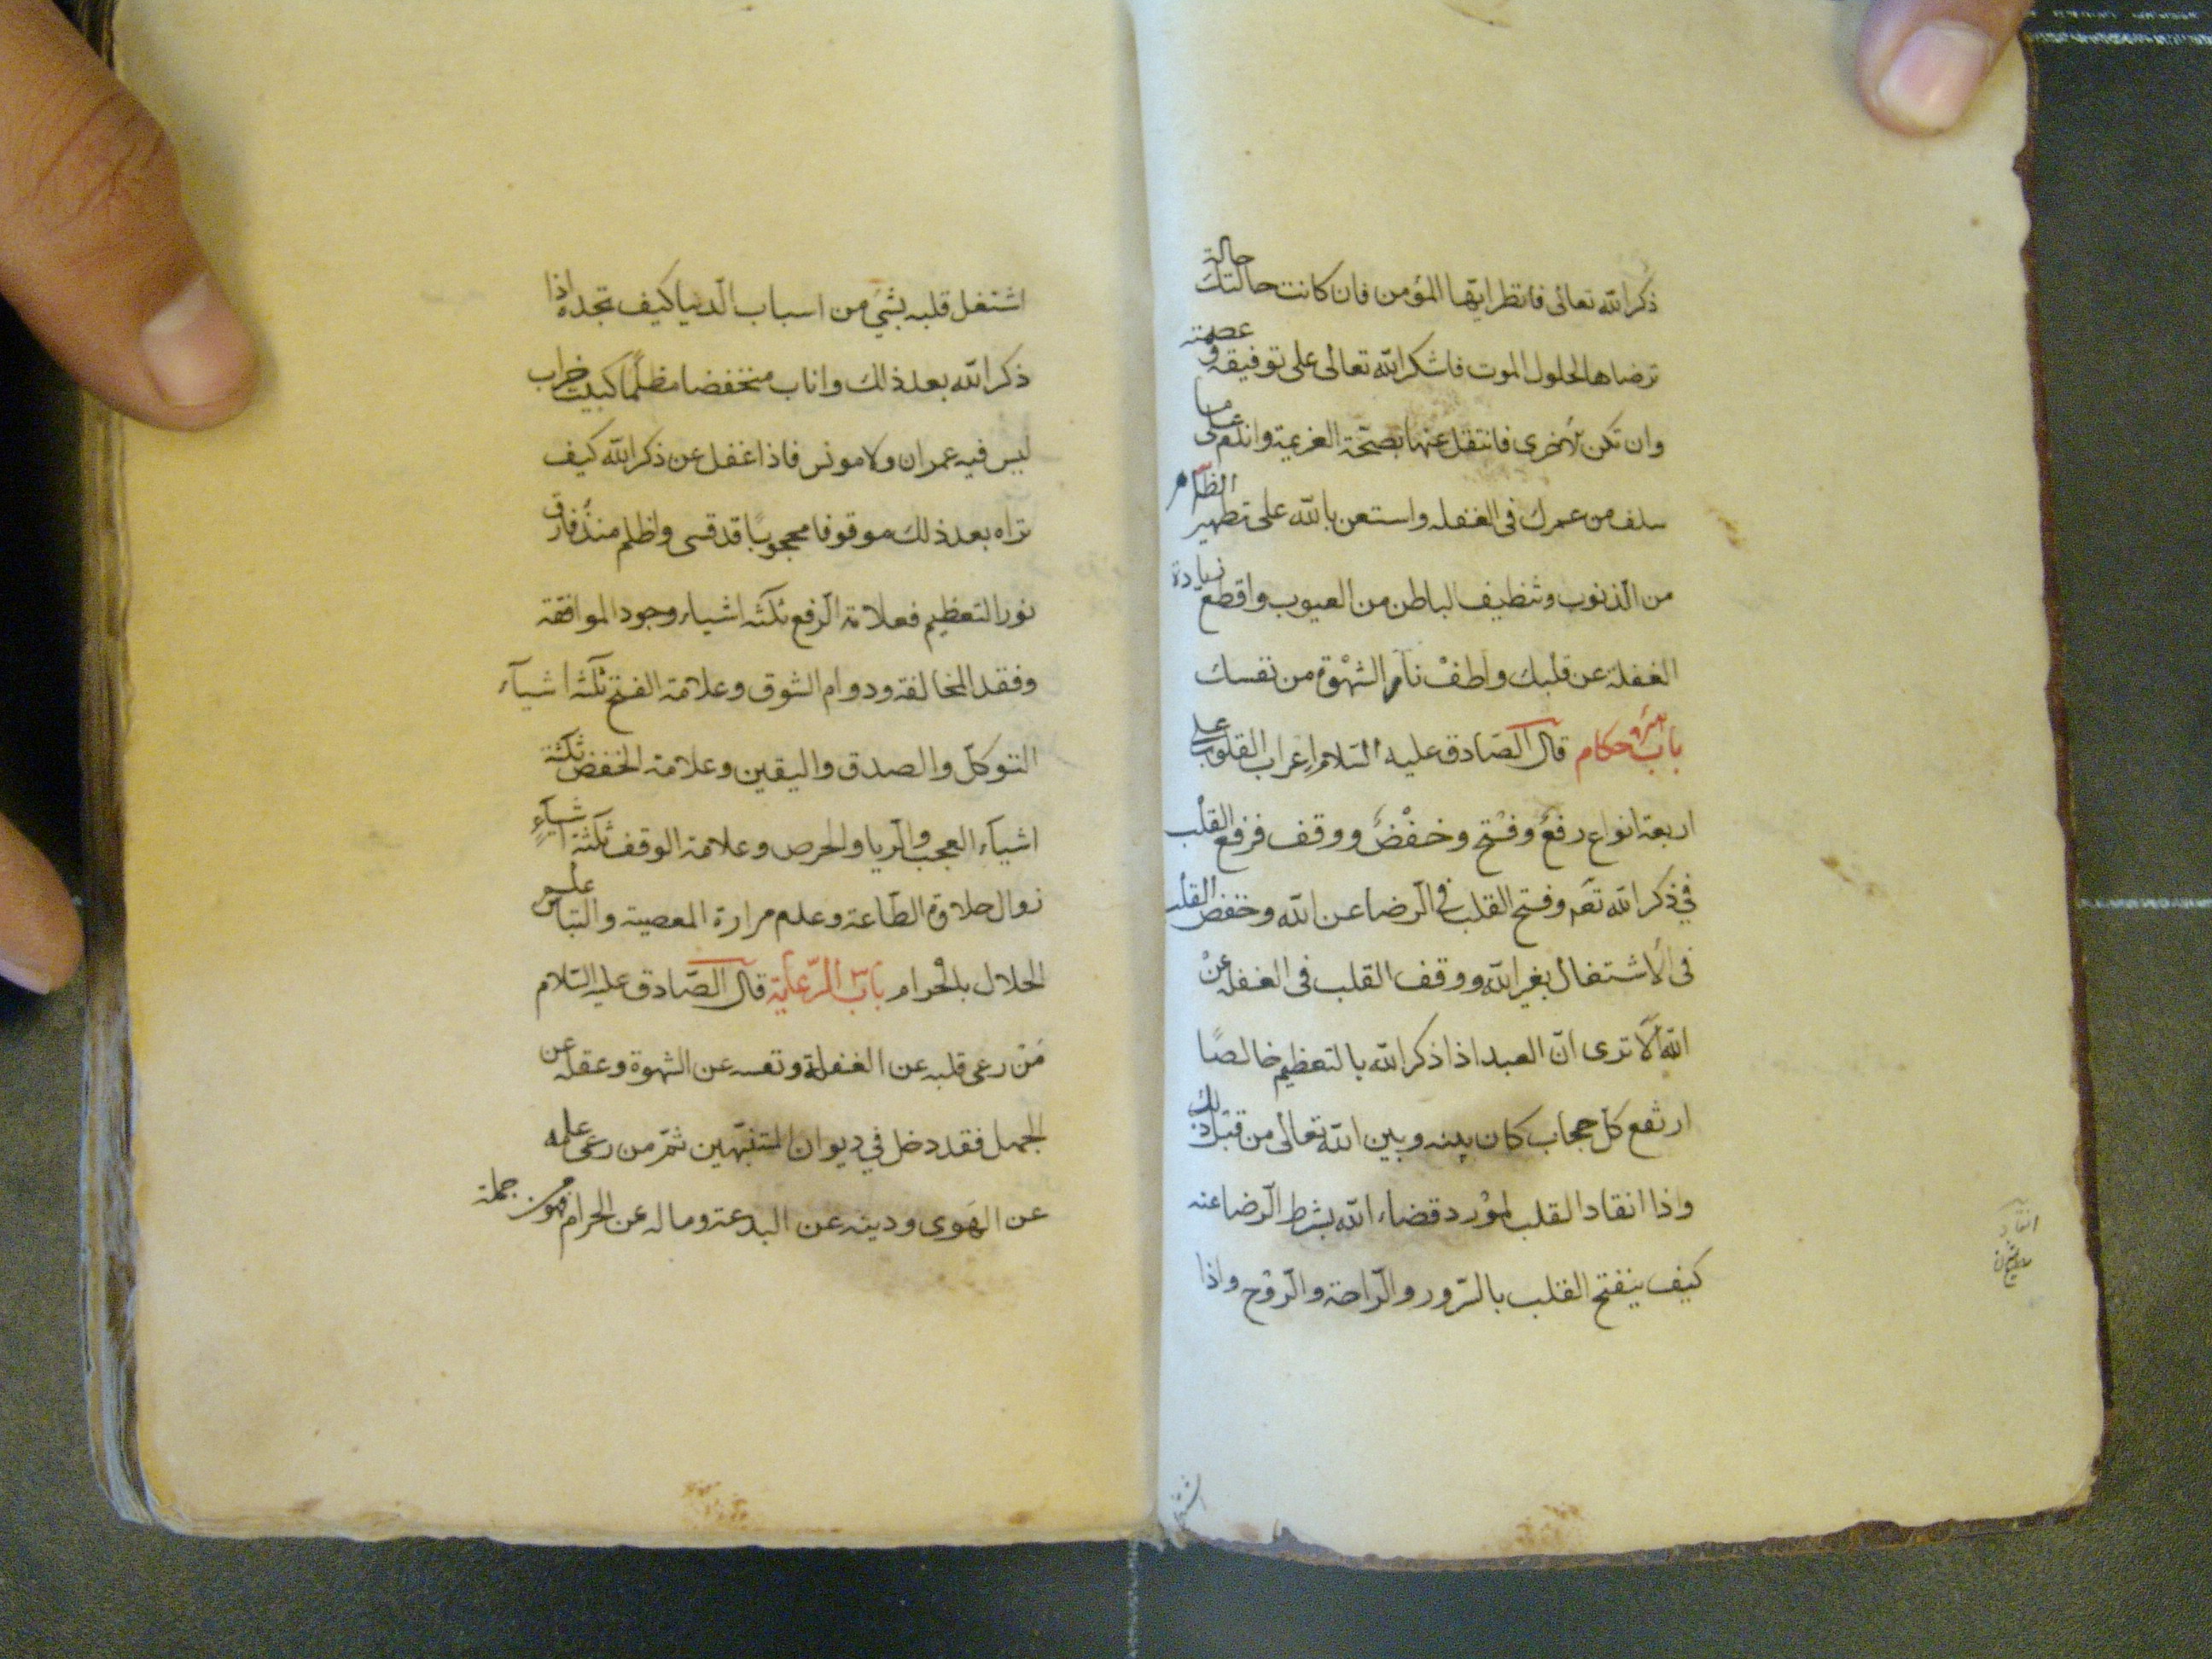 ذكر الله تعالى فانظر ايّها المؤمن فان كانت حالتك حالة
ترضاها لحلول الموت فاشكر الله تعالى على توفيقه و عصمته
وان تكن الأخرى فانتقل عنها بصحّة العزيمة واندم على ما
سلف من عمرك فى الغفله واستعن بالله على تطهير الظاهر
من الذنوب وتنظيف الباطن من العيوب واقطع زيادة
الغفلة عن قلبك واطفْ نار الشهْوة من نفسك
باب حكام قال الصّادق عليه السّلام اعراب القلوب على
اربعة انواع رفعٌ وفتْح وخفْضٌ ووقف فرفع القلْب
في ذكر الله تعم وفتح القلب في الرّضا عن الله وخفض القلب
فى الأشتغال بغير الله ووقف القلب فى الغفله عنْ
الله ألا ترى انّ العبد اذا ذكر الله بالتعظيم خالصًا
ارتفع كلّ حجاب كان بينه وبين الله تعالى من قبْل ذلك
واذا انقاد القلب لموْرد قضاء الله بشرط الرّضا عنه
كيف ينفتح القلب بالسّرور والرّاحة والرّوْح واذا
اشتغل قلبه بشئ من اسباب الدّنيا كيف تجده اذا
ذكر الله بعد ذلك واناب منخفضا مظلمًا كبيت خراب
ليس فيه عمران ولا مونس فاذا غفل عن ذكر الله كيف
تراه بعد ذلك موقوفا محجوبًا قد قسى واظلم منذ فارق
نور التعظيم فعلامة الرّفع ثلثه اشياء وجود الموافقة
وفقد المخالفة ودوام الشوق وعلامة الفتح ثلثه اشيآء
التوكّل والصدق واليقين وعلامة الخفض ثلثة
اشيآء العجب والرّيا والحرص وعلامة الوقف ثلثة اشيآء
زوال حلاوة الطّاعة وعدم مرارة المعصية والتباس علم
الحلال بالحرام باب الرّعاية قال الصّادق عليه السّلام
مَنْ رعى قلبه عن الغفلة ونفسه عن الشهوة وعقله عن
الجهل فقد دخل في ديوان المتنبّهين ثمّ من رعى علمه
عن الهَوى ودينه عن البدعة وماله عن الحرام فهو من جملة